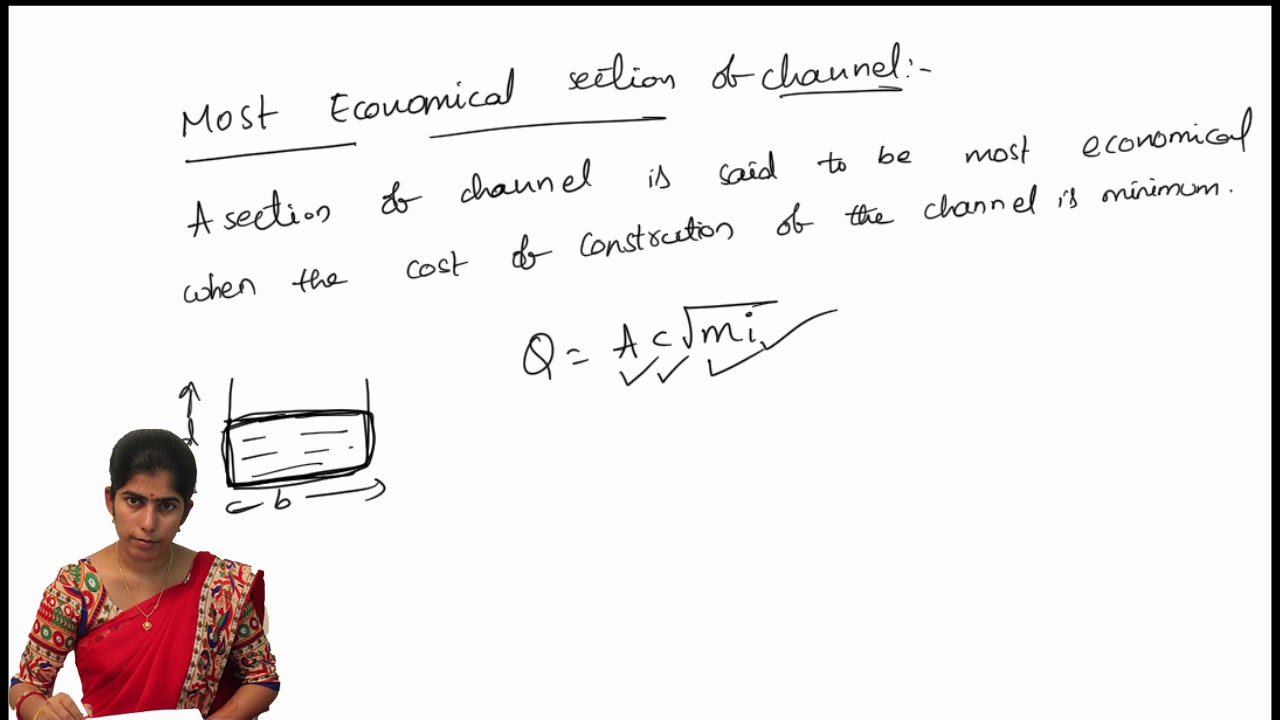 Most Economical section of channel:-
A section of channel is said to be most economical
when the cost of constrcution of the channel is minimum.
Q = A c √mi
d
b